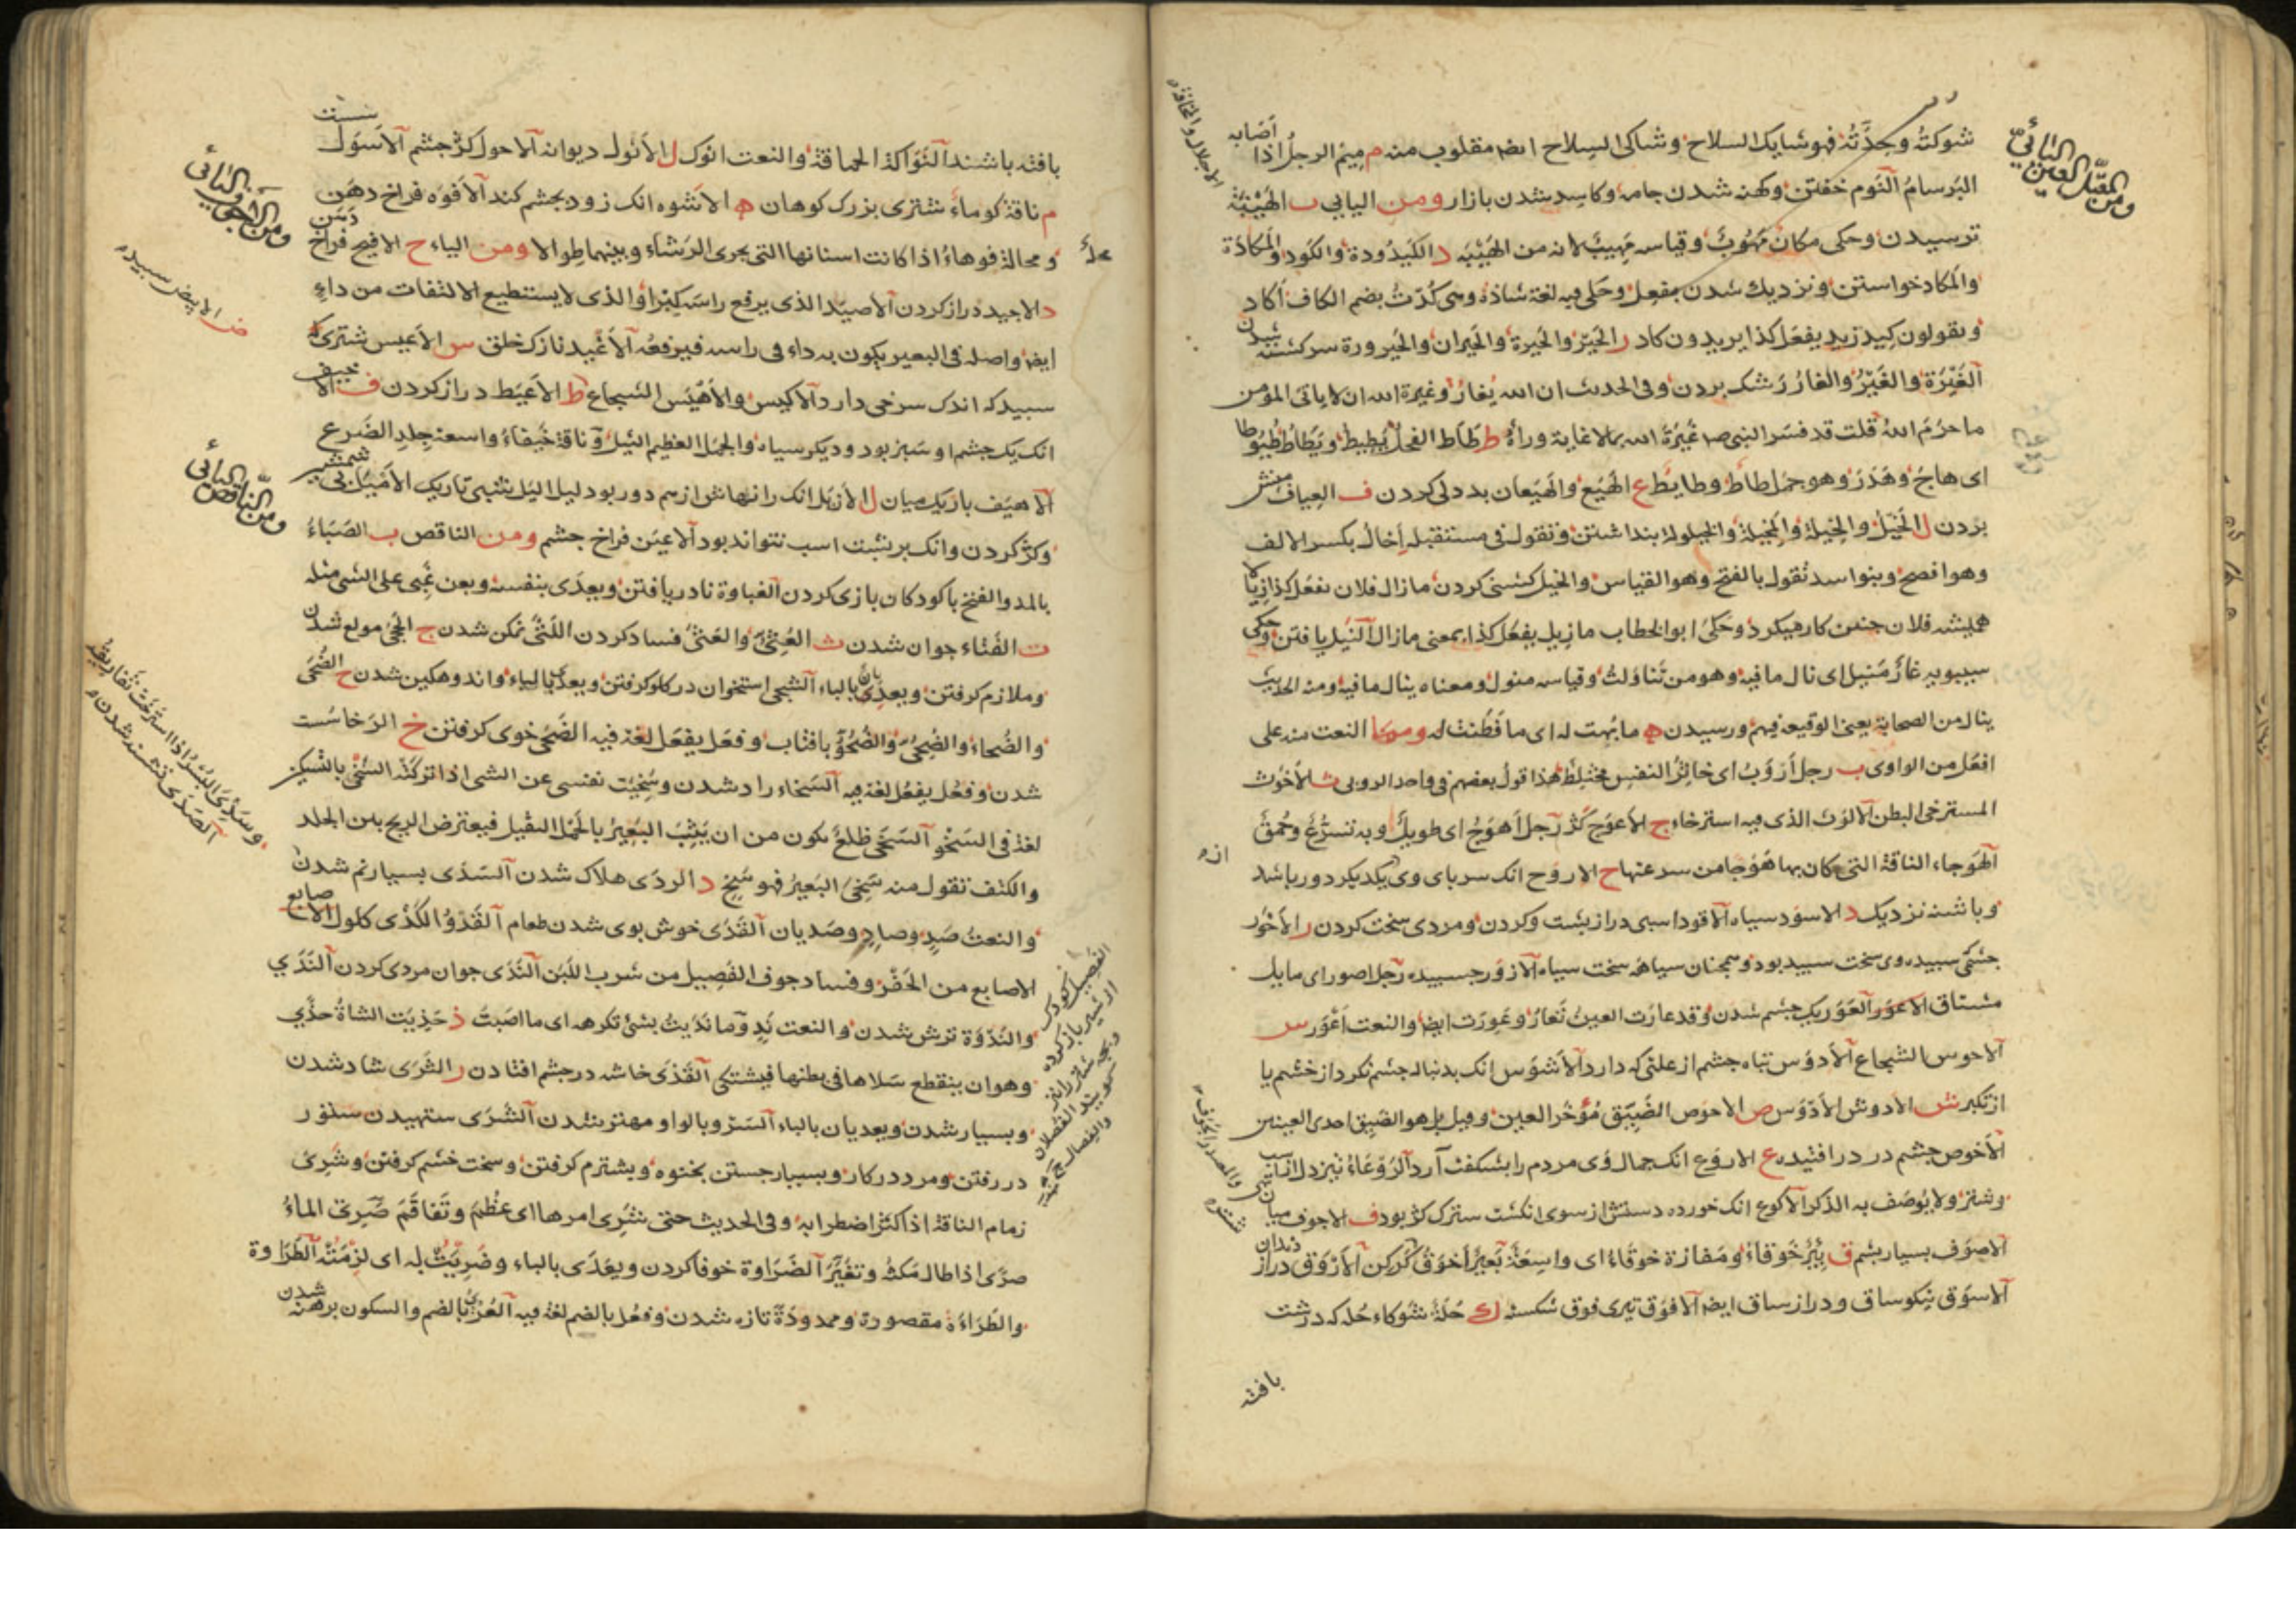 شوكتُه وحِدَّتُه فهو شايك السلاح وشاكى السلاح ايضا مقلوب منه م مِيمَ الرجلُ اذا اصابه
البِرسامُ النَوم خفتن وكهنه شدن جامه وكاسد شدن بازار ومن اليايي ب الهَيْبَة
ترسيدن وحكى مكانٌ مَهُوبٌ وقياسه مَهِيبٌ لانه من الهَيْبَة د الكَيْدُودة والكَود والمَكادَة
والمَكاد خواستن ونزديك شدن بفعل وحكى فيه لغة شاذة وهى كُدْتُ بضم الكاف اكاد
ويقولون كِيدَ زيد يفعل كذا يريدون كاد ر الحَيْر والحَيرة والحَيران والحَيرورة سركشته شدن
الغَيْرَة والغَيْرُ والغارُ رشك بردن وفى الحديث ان الله يَغارُ وغيرة الله ان لا ياتى المؤمن
ما حرّم اللهُ قلت قد فسر النبى ص غَيْرَة الله بما لا غاية وراءهُ ط طاط الفحلُ يَطِيطُ ويَطاطُ طُيُوطا
اى هاج وهَدَرَ وهو جمل طاط وطايط ع الهَيْع والهَيَعان بددلى كردن ف العِياف منش
بردن ل الخَيْل والخِيلة والمَخِيلة والخَيلولة بنداشتن وتقول فى مستقبله اِخالُ بكسر الالف
وهو افصح وبنو اسد تقول بالفتح وهو القياس والخيل كشنى كردن ما زال فلان يفعل كذا زِيالا
هميشه فلان جنين كار ميكرد وحَكَى ابو الخطاب ما زِيل يفعل كذا بمعنى ما زال النَيل يافتن وحكى
سيبويه غازٌ مَنِيل اى نال ما فيه وهو من تَناوَلتُ وقياسه منول ومعناه ينال ما فيه ومنه الحديث
ينال من الصحابة يعنى الوقيعة فيهم ورسيدن ه ما بُهت له اى ما فَطُنت له ومما النعت منه على
افعَل من الواوى ب رجل اَروَبُ اى خاثِرُ النفس مختلط هذا قول بعضهم فى واحد الروبى ث الاَخوَث
المسترخى البطن الالوَث الذى فيه استرخاء ج الاعوَج كژ رجل اَهوَجُ اى طويلٌ وبه تسرُّع وحُمقٌ
الهَوجاء الناقة التى كان بها هَوَجا من سرعتها ح الاروَح انك سر باى وى يكديكر دور باشد
وباشنه نزديك د الاسوَد سياه الاقود اسبى دراز پشت وكردن ومردى سخت كردن ر الاَحوَر
جشمى سبيده وى سخت سبيد بود وهمچنان سياهه سخت سياه الازوَر جسبيده رجل اصور اى مايل
مشتاق الاعوَر العَوَر يك جشم شدن وقد عارَت العينُ تَعارُ وعَوِرَت ايضا والنعت اَعْوَر س
الاحوس الشجاع الاَدوَس تباه جشم از علتى كه دارد الاَشوَس انك بدنباله جشم نكرد از خشم يا
از تكبر ش الادوش الاَدْوَس ص الاحوَص الضَيِّق مُؤخَر العين وقيل بل هو الضيق احدى العينين
الاَخوص جشم در درافتيده ع الاروَع انك جمال وى مردم را بشكفت آرد الرَوعاءُ تيزدل از ناقه
وشتر ولا يُوصَف به الذكر الاكوع انك خورده دستش از سوى انكشت سترك كژ بود ف الاجوف ميان تهى
الاصوَف بسيار پشم ق بِئرٌ خَوقاءُ ومَفازة خوقَاءُ اى واسِعَةٌ بَعيرٌ اَخوَقُ كَركن الاَرْوَق دراز دندان
الاسوَق نيكو ساق ودراز ساق ايضا الافوَق تيرى فوق شكسته ك حُلّةٌ شَوكاء حُله كه درشت
بافته
ومن المعتلّ العين اليائي
بافته باشند النَوَاكة الحماقة والنعت انوك ل الاَثول ديوانه الاحول كژ جشم الاَسوَل سست
م ناقة كوماءُ شترى بزرك كوهان ه الاَشوَه انك زود بجشم كند الاَفوَه فراخ دهَن
ومحالة فوهاءُ اذا كانت اسنانها التى يجرى الرشاء وبينهما طوالا ومن الياء ح الافيح فراخ
د الاجيد دراز كردن الاَصيَد الذى يرفع راسه كِبْرا والذى لا يستطيع الالتفات من داءٍ
ايضا واصله فى البعير يكون به داء فى راسه فيرفعُه الاَغْيد نازك خلق س الاَعيس شترى كه
سبيد كه اندك سرخى دارد الاكيس والاَهْيَس الشجاع ط الاَعيَط دراز كردن ف الاخيف
انك يك جشم او سبز بود وديكر سياه والجمل العظيم الثيل وناقة خَيفاءُ واسعة جِلدِ الضَرع
الاهيَف باريك ميان ل الاَزيَل انك رانهاش از هم دور بود ليل اليل شبى تاريك الاَميَل بى شمشير
وكژ كردن وانك بر پشت اسب نتواند بود الاعيَن فراخ جشم ومن الناقص ب الصَبَاءُ
بالمد والفتح با كودكان بازى كردن الغباوة نادريافتن ويعدَى بنفسه وبعن غَبِى على الشى مثله
ت الفَتاء جوان شدن ث العُثِىّ والعَثى فساد كردن اللَثَى نمكن شدن ج الحَجى مولع شدن
وملازم كرفتن ويعديان بالباء الشجى استخوان در كلو كرفتن ويعدى بالباء واندوهكين شدن ح الضُحَى
والضُحاء والضِحِىّ والضُحُوّ بافتاب وفعَل يفعَل لغة فيه الضَحَى خوى كرفتن خ الرَخا سُست
شدن وفعُل يفعُل لغة فيه السَخاء راد شدن وسَخِيَت نفسى عن الشى اذا تركته السَخْى بالتسكين
لغة فى السَخْو السَخَى ظَلَعٌ يكون من ان يَثِبَ البَعِيرُ بالحمل الثقيل فيعترض الريح بين الجلد
والكتف تقول منه سَخِىَ البَعيرُ فهو سَخٍ د الردَى هلاك شدن السَدَى بسيار نم شدن
والنعتُ صَدٍ وصادٍ وصَديان القَدَى خوش بوى شدن طعام القَدْوُ الكَدَى كلول الاصابع
الاصابع من الحَفْر وفساد جوف الفَصِيل من شرب اللَبَن النَدَى جوان مردى كردن النَدَي
والنُدُوّة ترش شدن والنعت نَدٍ وما نَدِيتُ بشئ تكرهه اى ما اصَبتُ ذ حَذِيَت الشاةُ حذًي
وهو ان ينقطع سَلاها فى بطنها فيشتكى القَذَى خاشه در جشم افتادن ر الثَرَى شاد شدن
وبسيار شدن ويعديان بالباء السَرو بالواو مهتر شدن الشَرَى ستهيدن ستور
در رفتن ومرد در كار وبسيار جستن بخنوه وبشترم كرفتن وسخت خشم كرفتن وشَرِىَ
زمام الناقة اذا كثر اضطرابه وفى الحديث حتى شَرِى امرهما اى عظُمَ وتَفاقَمَ صَرِىَ الماءُ
صرًى اذا طال مَكثه وتغيَّرَ الضَرَاوة خو فاكردن ويعَدَى بالباء وضَرِيَتْ له اى لزِمَتْه الطَرَاوة
والطَرَاءَة مقصورة وممدودة تازه شدن وفعُل بالضم لغة فيه العُرْى بالضم والسكون برهنه شدن
ومن الاجوف اليائي
ض الابيض سبيد
ومن الناقص اليائي
وسَدِىَ البُسْرُ اذا استَرخَت ثَفارِيقُه
الصَدَى تشنه شدن